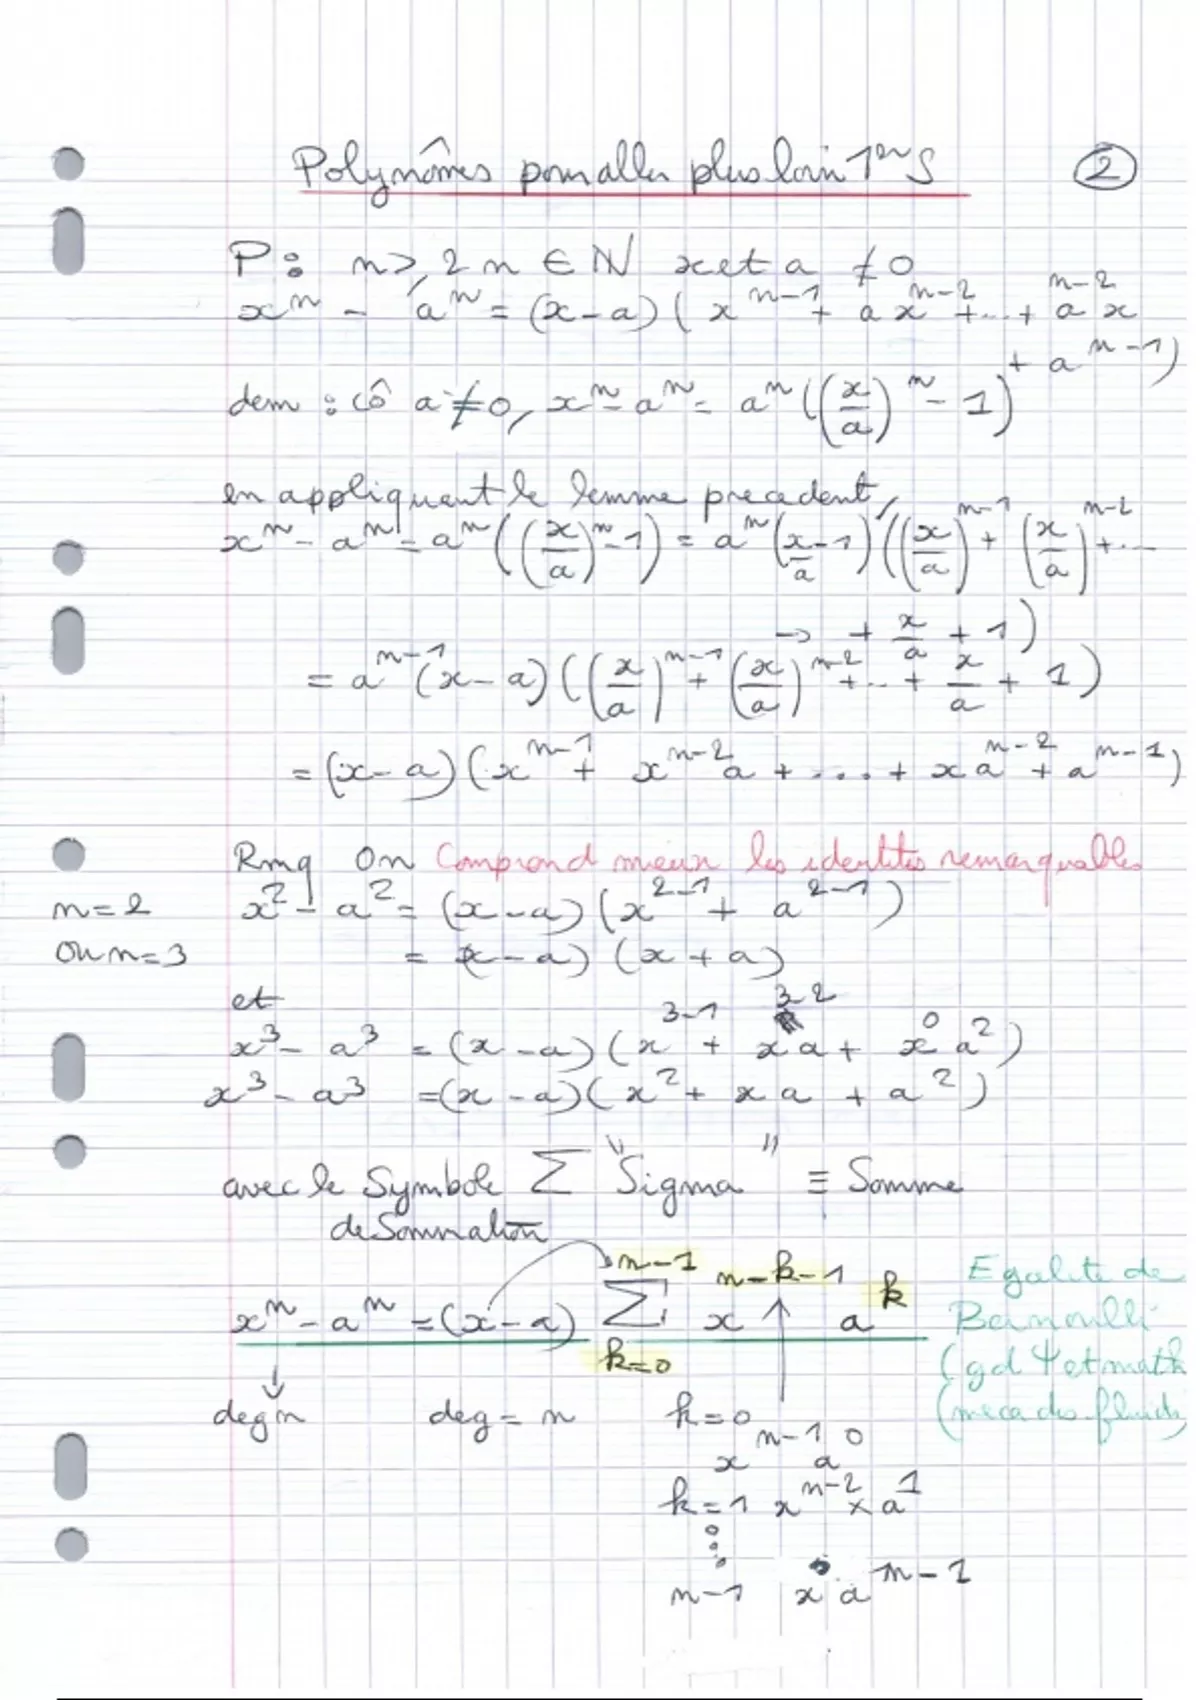 Polynômes pour aller plus loin 1ère S ②
P: n ⩾ 2 n ∈ ℕ x et a ≠ 0
xⁿ - aⁿ = (x-a)(x^{n-1} + a x^{n-2} + ... + a^{n-2} x
+ a^{n-1})
dem : cô a ≠ 0, xⁿ - aⁿ = aⁿ((x/a)ⁿ - 1)
en appliquant le lemme precedent,
xⁿ - aⁿ = aⁿ((x/a)ⁿ - 1) = aⁿ(x/a - 1)((x/a)^{n-1} + (x/a)^{n-2} + ...
→ + x/a + 1)
= a^{n-1}(x-a)((x/a)^{n-1} + (x/a)^{n-2} + ... + x/a + 1)
= (x-a)(x^{n-1} + x^{n-2}a + .... + xa^{n-2} + a^{n-1})
Rmq On comprend mieux les identités remarquables
n=2 x² - a² = (x-a)(x^{2-1} + a^{2-1})
ou n=3 = (x-a)(x+a)
et
x³ - a³ = (x-a)(x^{3-1} + x^{3-2}a + x⁰a²)
x³ - a³ = (x-a)(x² + xa + a²)
avec le Symbole Σ "Sigma" ≡ Somme
de Sommation
xⁿ - aⁿ = (x-a) Σ_{k=0}^{n-1} x^{n-k-1} a^k
Egalité de
Bernoulli
(gd Ψ et math
(meca des fluides)
deg n deg = n k=0
x^{n-1} a⁰
k=1 x^{n-2} × a¹
⋮
n-1 x⁰ a^{n-1}